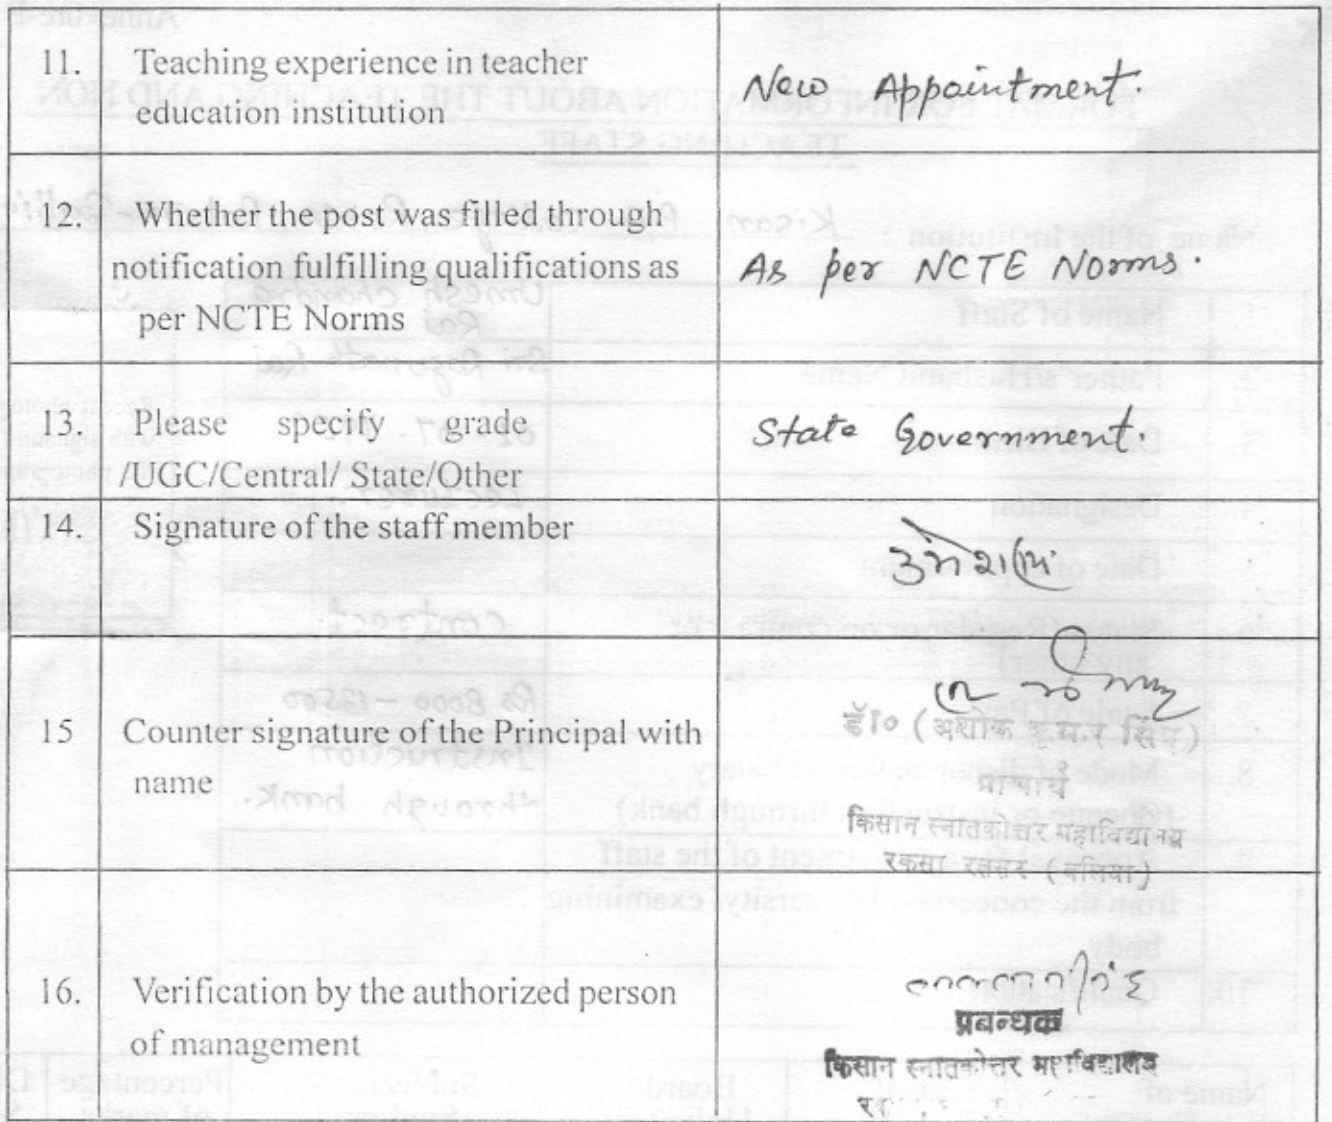 11. Teaching experience in teacher
education institution
New Appointment.
12. Whether the post was filled through
notification fulfilling qualifications as
per NCTE Norms
As per NCTE Norms.
13. Please specify grade
/UGC/Central/ State/Other
State Government.
14. Signature of the staff member
15 Counter signature of the Principal with
name
डॉ० (अशोक कुमार सिंह)
प्राचार्य
किसान स्नातकोत्तर महाविद्यालय
रकसा रतसर (बलिया)
16. Verification by the authorized person
of management
प्रबन्धक
किसान स्नातकोत्तर महाविद्यालय